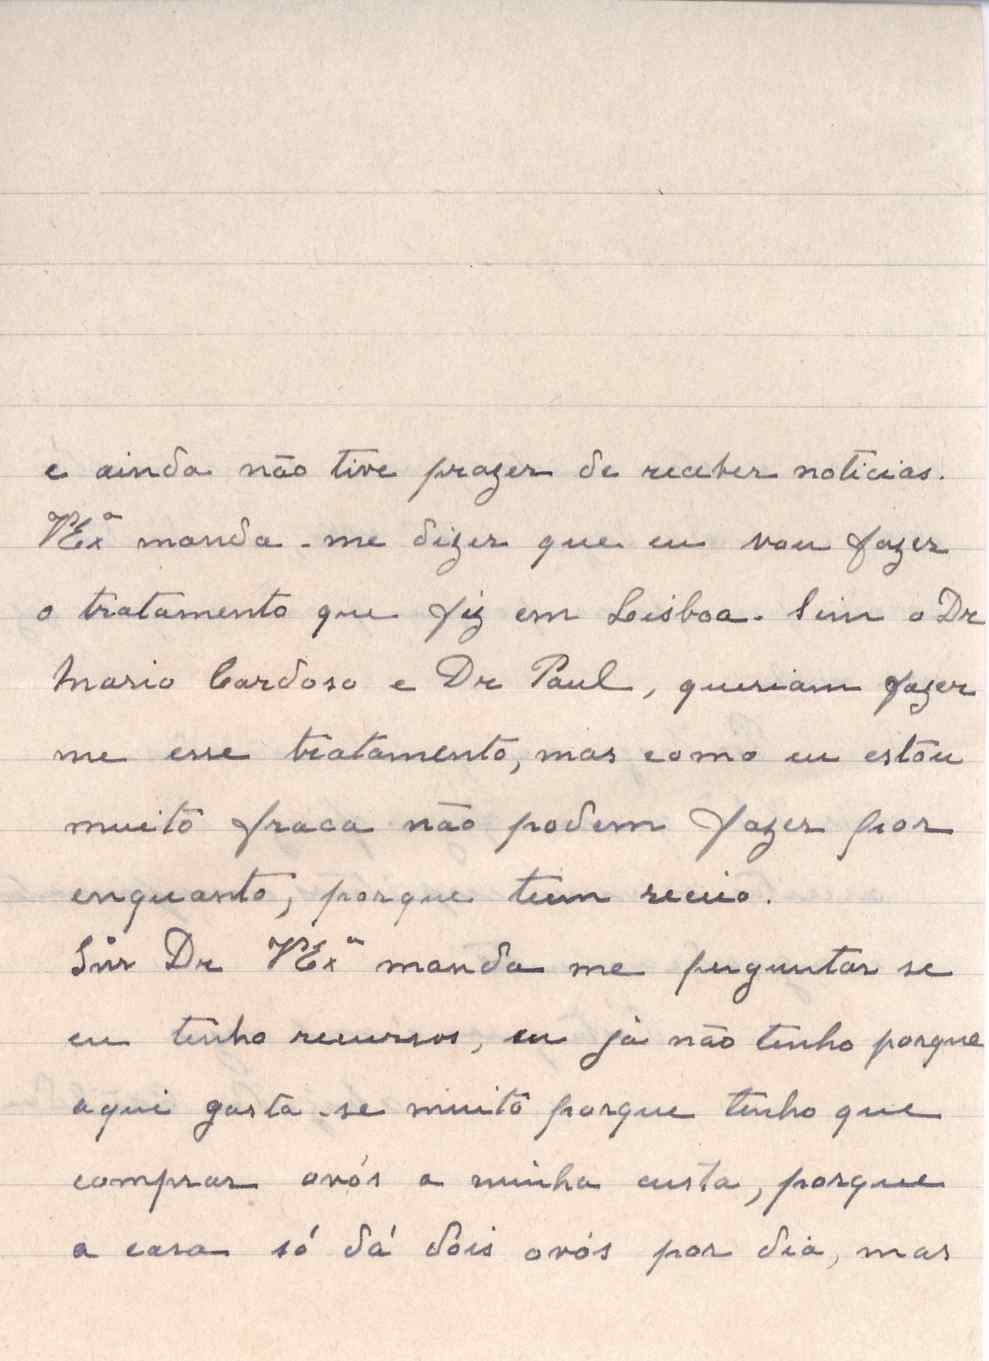 e ainda não tive prazer de receber noticias.
VExª manda-me dizer que eu vou fazer
o tratamento que fiz em Lisboa. Sim o Dr
Mario Cardoso e Dr Paul, queriam fazer
me esse tratamento, mas como eu estou
muito fraca não podem fazer por
enquanto, porque teem receio.
Snr Dr VExª manda me perguntar se
eu tenho recursos, eu já não tenho porque
aqui gasta-se muito porque tenho que
comprar ovós a minha custa, porque
a casa só dá dois ovós por dia, mas